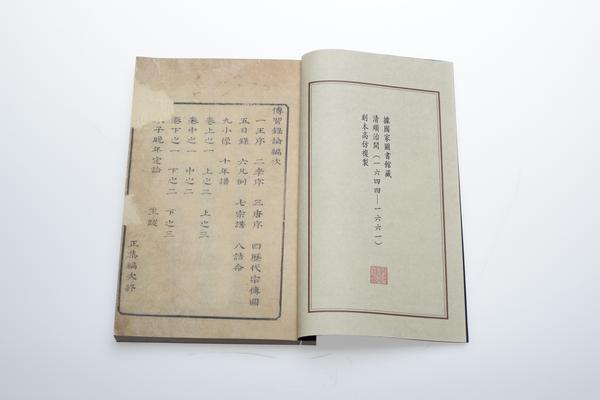 據國家圖書館藏
清順治間（一六四四—一六六一）
刻本高仿複製
傳習錄論編次
一王序 二李序 三唐序 四歷代宗傳圖
五目錄 六凡例 七宗譜 八誥命
九小像 十年譜
卷上之一 上之二 上之三
卷中之一 中之二
卷下之一 下之二 下之三
子晚年定論
正集編次終